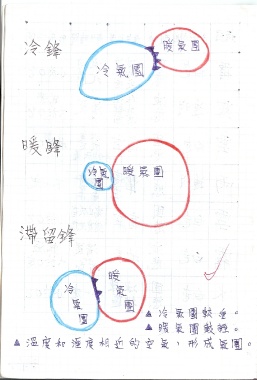 冷鋒
冷氣團 暖氣團
暖鋒
冷氣團 暖氣團
滯留鋒
冷氣團 暖氣團
▲冷氣團較重。
▲暖氣團較輕。
▲溫度和溼度相近的空氣,形成氣團。